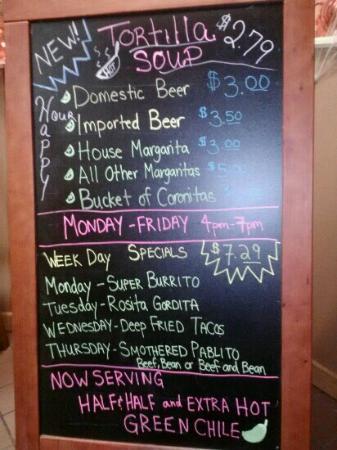 NEW!
TORTILLA $2.79
SOUP
HOT
Happy Hour
Domestic Beer $3.00
Imported Beer $3.50
House Margarita $3.00
All Other Margaritas
Bucket of Coronitas
MONDAY-FRIDAY 4pm-7pm
WEEK DAY SPECIALS $7.29
Monday-SUPER BURRITO
TUESDAY-ROSITA GORDITA
WEDNESDAY-DEEP FRIED TACOS
THURSDAY-SMOTHERED PABLITO
Beef, Bean or Beef and Bean
NOW SERVING
HALF & HALF and EXTRA HOT
GREEN CHILE